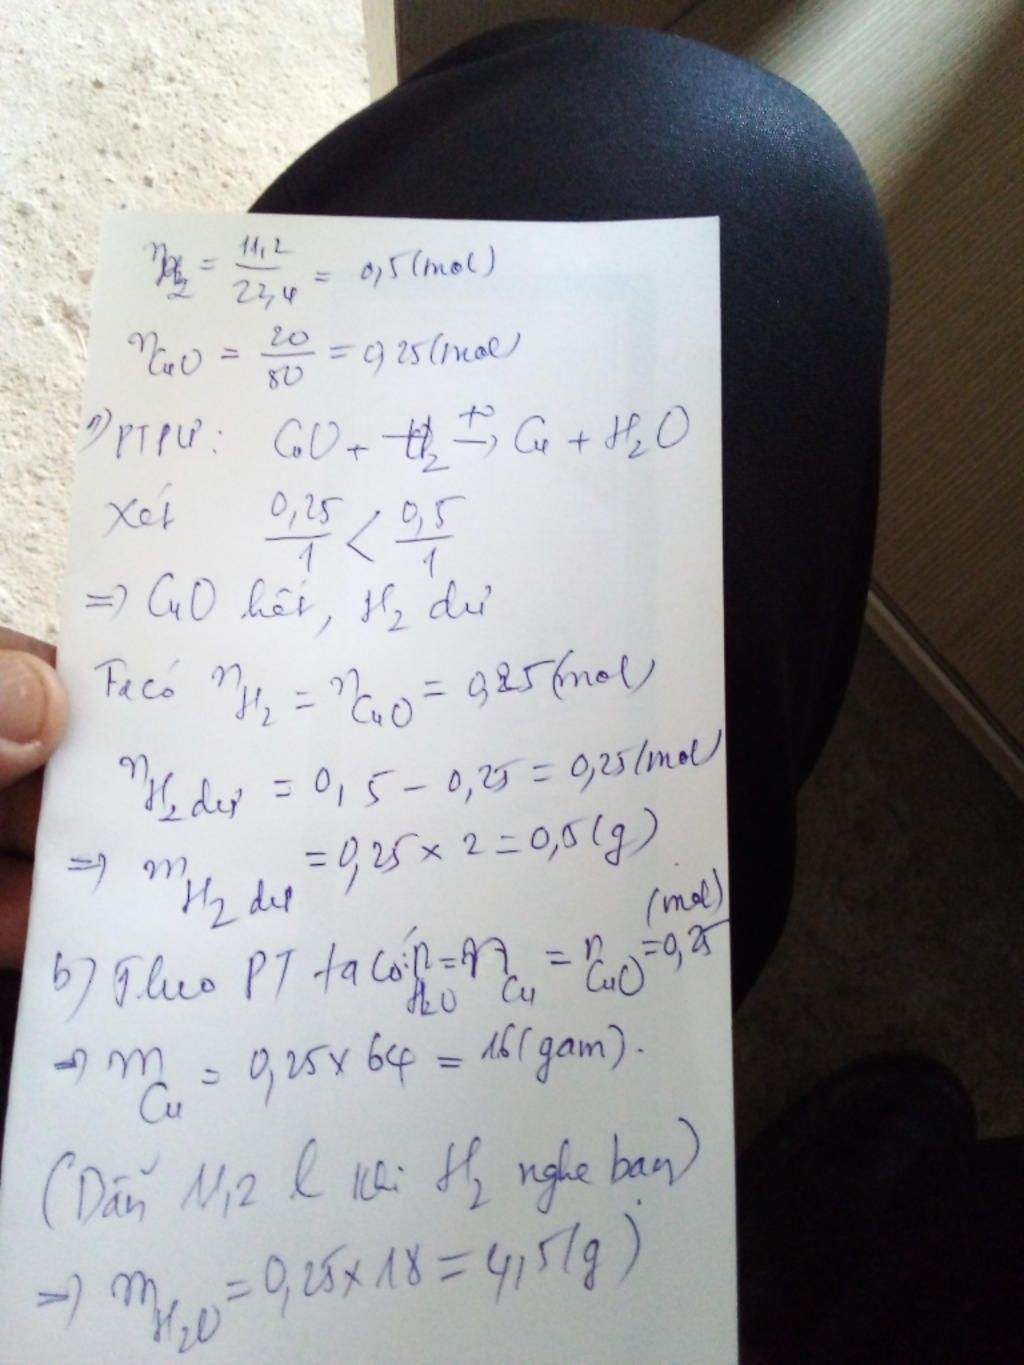 nH₂ = 11,2/22,4 = 0,5 (mol)
nCuO = 20/80 = 0,25 (mol)
a) PTPƯ: CuO + H₂ t°→ Cu + H₂O
Xét 0,25/1 < 0,5/1
=> CuO hết, H₂ dư
Ta có nH₂ = nCuO = 0,25 (mol)
nH₂ dư = 0,5 - 0,25 = 0,25 (mol)
=> mH₂ dư = 0,25 × 2 = 0,5 (g)
b) Theo PT ta có: nH₂O = nCu = nCuO = 0,25 (mol)
=> mCu = 0,25 × 64 = 16 (gam).
(Dẫn 11,2 l khí H₂ nghe bạn)
=> mH₂O = 0,25 × 18 = 4,5 (g)